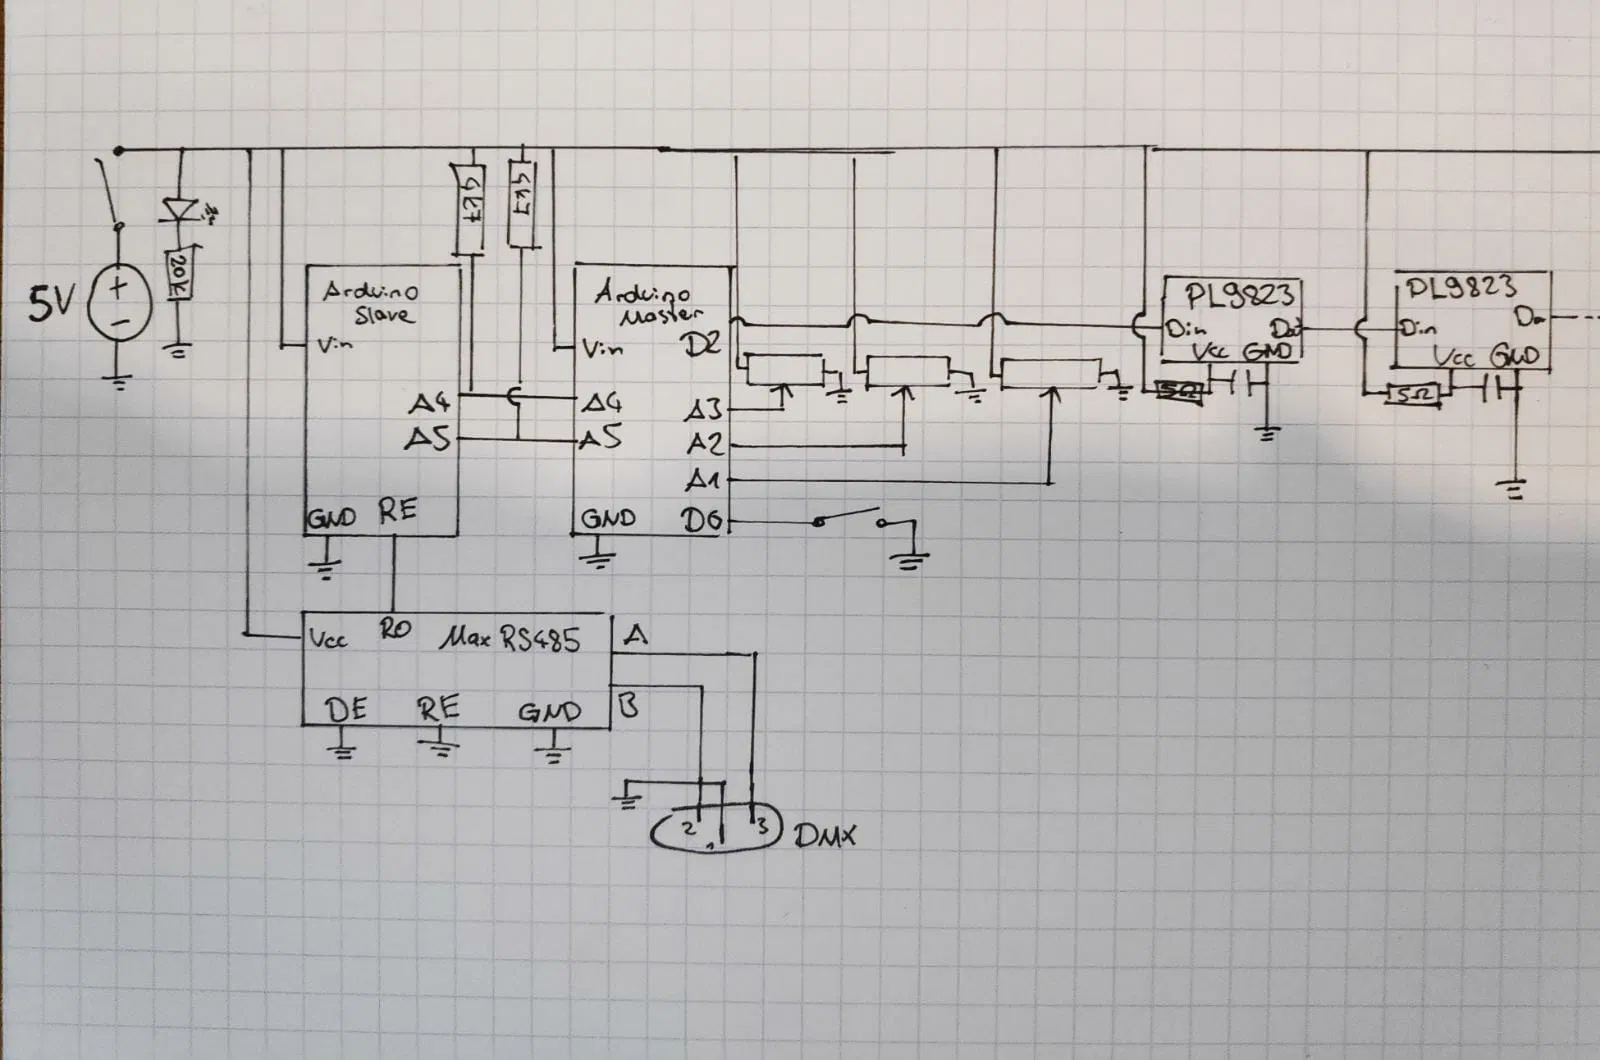 5V
20k
4k7
4k7
Arduino
Slave
Vin
A4
A5
GND RE
Arduino
Master
Vin
D2
A4
A5
A3
A2
A1
GND D6
PL9823
Din Dout
Vcc GND
5Ω
PL9823
Din Do
Vcc GND
5Ω
Vcc RO Max RS485
A
B
DE RE GND
2 1 3
DMX